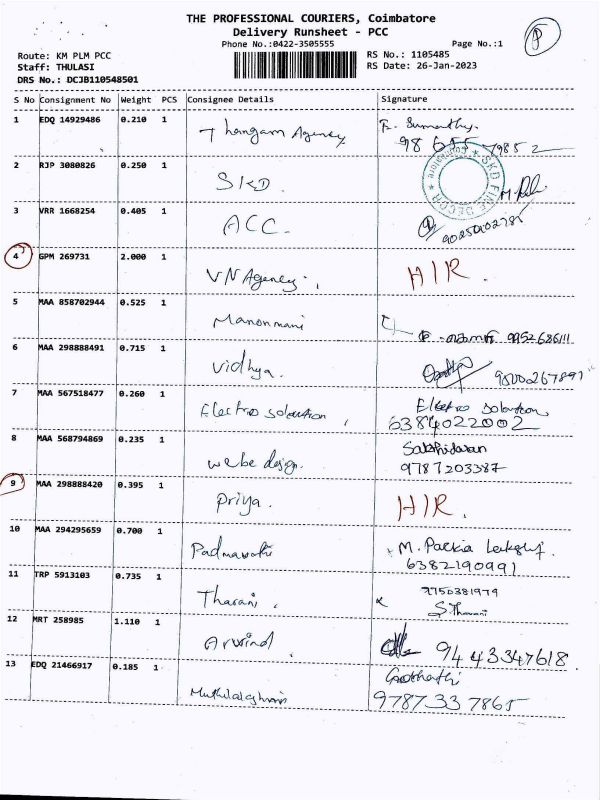 THE PROFESSIONAL COURIERS, Coimbatore
Delivery Runsheet - PCC
Phone No.:0422-3505555
Page No.:1
P
Route: KM PLM PCC
Staff: THULASI
DRS No.: DCJB110548501
RS No.: 1105485
RS Date: 26-Jan-2023
S No Consignment No Weight PCS Consignee Details Signature
1 EDQ 14929486 0.210 1 Thangam Agency
2 RJP 3080826 0.250 1 SKD.
SKD FINE DECOR * Coimbatore *
3 VRR 1668254 0.405 1 ACC.
4 GPM 269731 2.000 1 VN Agency. H/R.
5 MAA 858702944 0.525 1 Manonmani
6 MAA 298888491 0.715 1 Vidhya.
7 MAA 567518477 0.260 1 Electro solartion, Electro solartion
6384022002
8 MAA 568794869 0.235 1 webe design. Sakthidasan
9787203387
9 MAA 298888420 0.395 1 Priya. H/R.
10 MAA 294295659 0.700 1 Padmavathi M. Packia
6382190991
11 TRP 5913103 0.735 1 Tharani, 9750381979
S. Tharani
12 MRT 258985 1.110 1 Arvind 9443347618
13 EDQ 21466917 0.185 1
9787337865